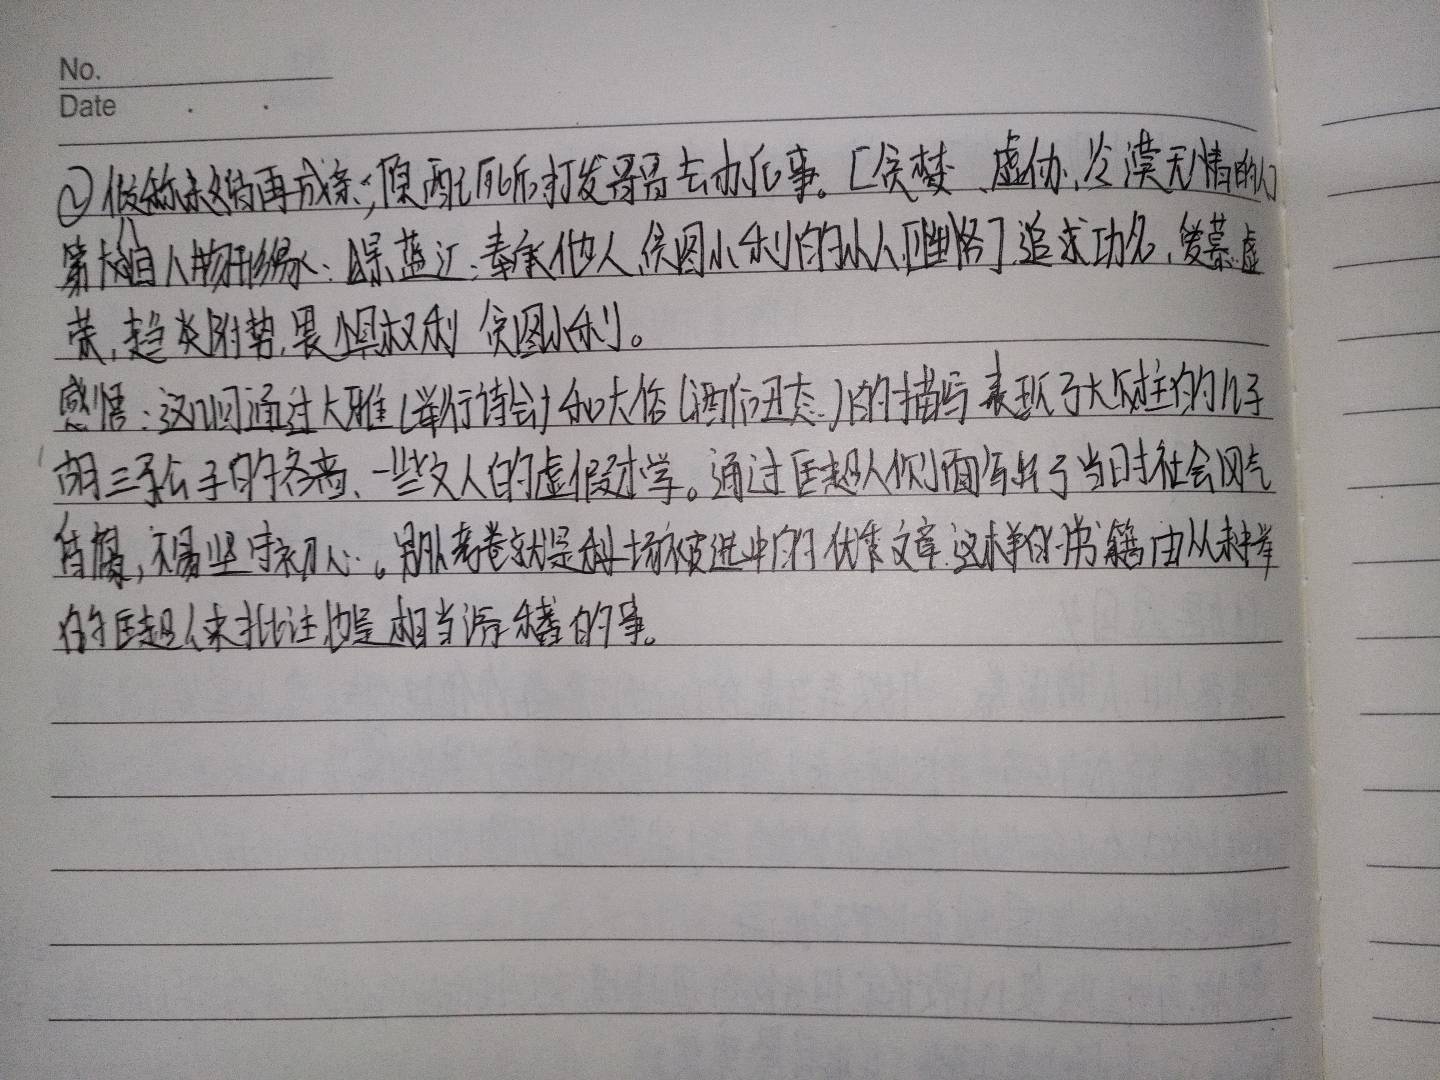 No.
Date
②假称未娶再成亲;原配死后打发哥哥去办后事。[贪婪、虚伪、冷漠无情的人]
人物形象:景蓝江:奉承他人、贪图小利的小人[性格]追求功名,爱慕虚
荣,趋炎附势,畏惧权利 贪图小利。
感悟:这一回通过大雅(举行诗会)和大俗(酒后丑态)的描写表现了大财主的儿子
胡三公子的吝啬、一些文人的虚假才学。通过匡超人侧面写出了当时社会风气
腐,不易坚守初心。朋考卷就是科场被进中的优秀文章.这样的书籍由从未中举
的匡超人来批注也是相当滑稽的事。